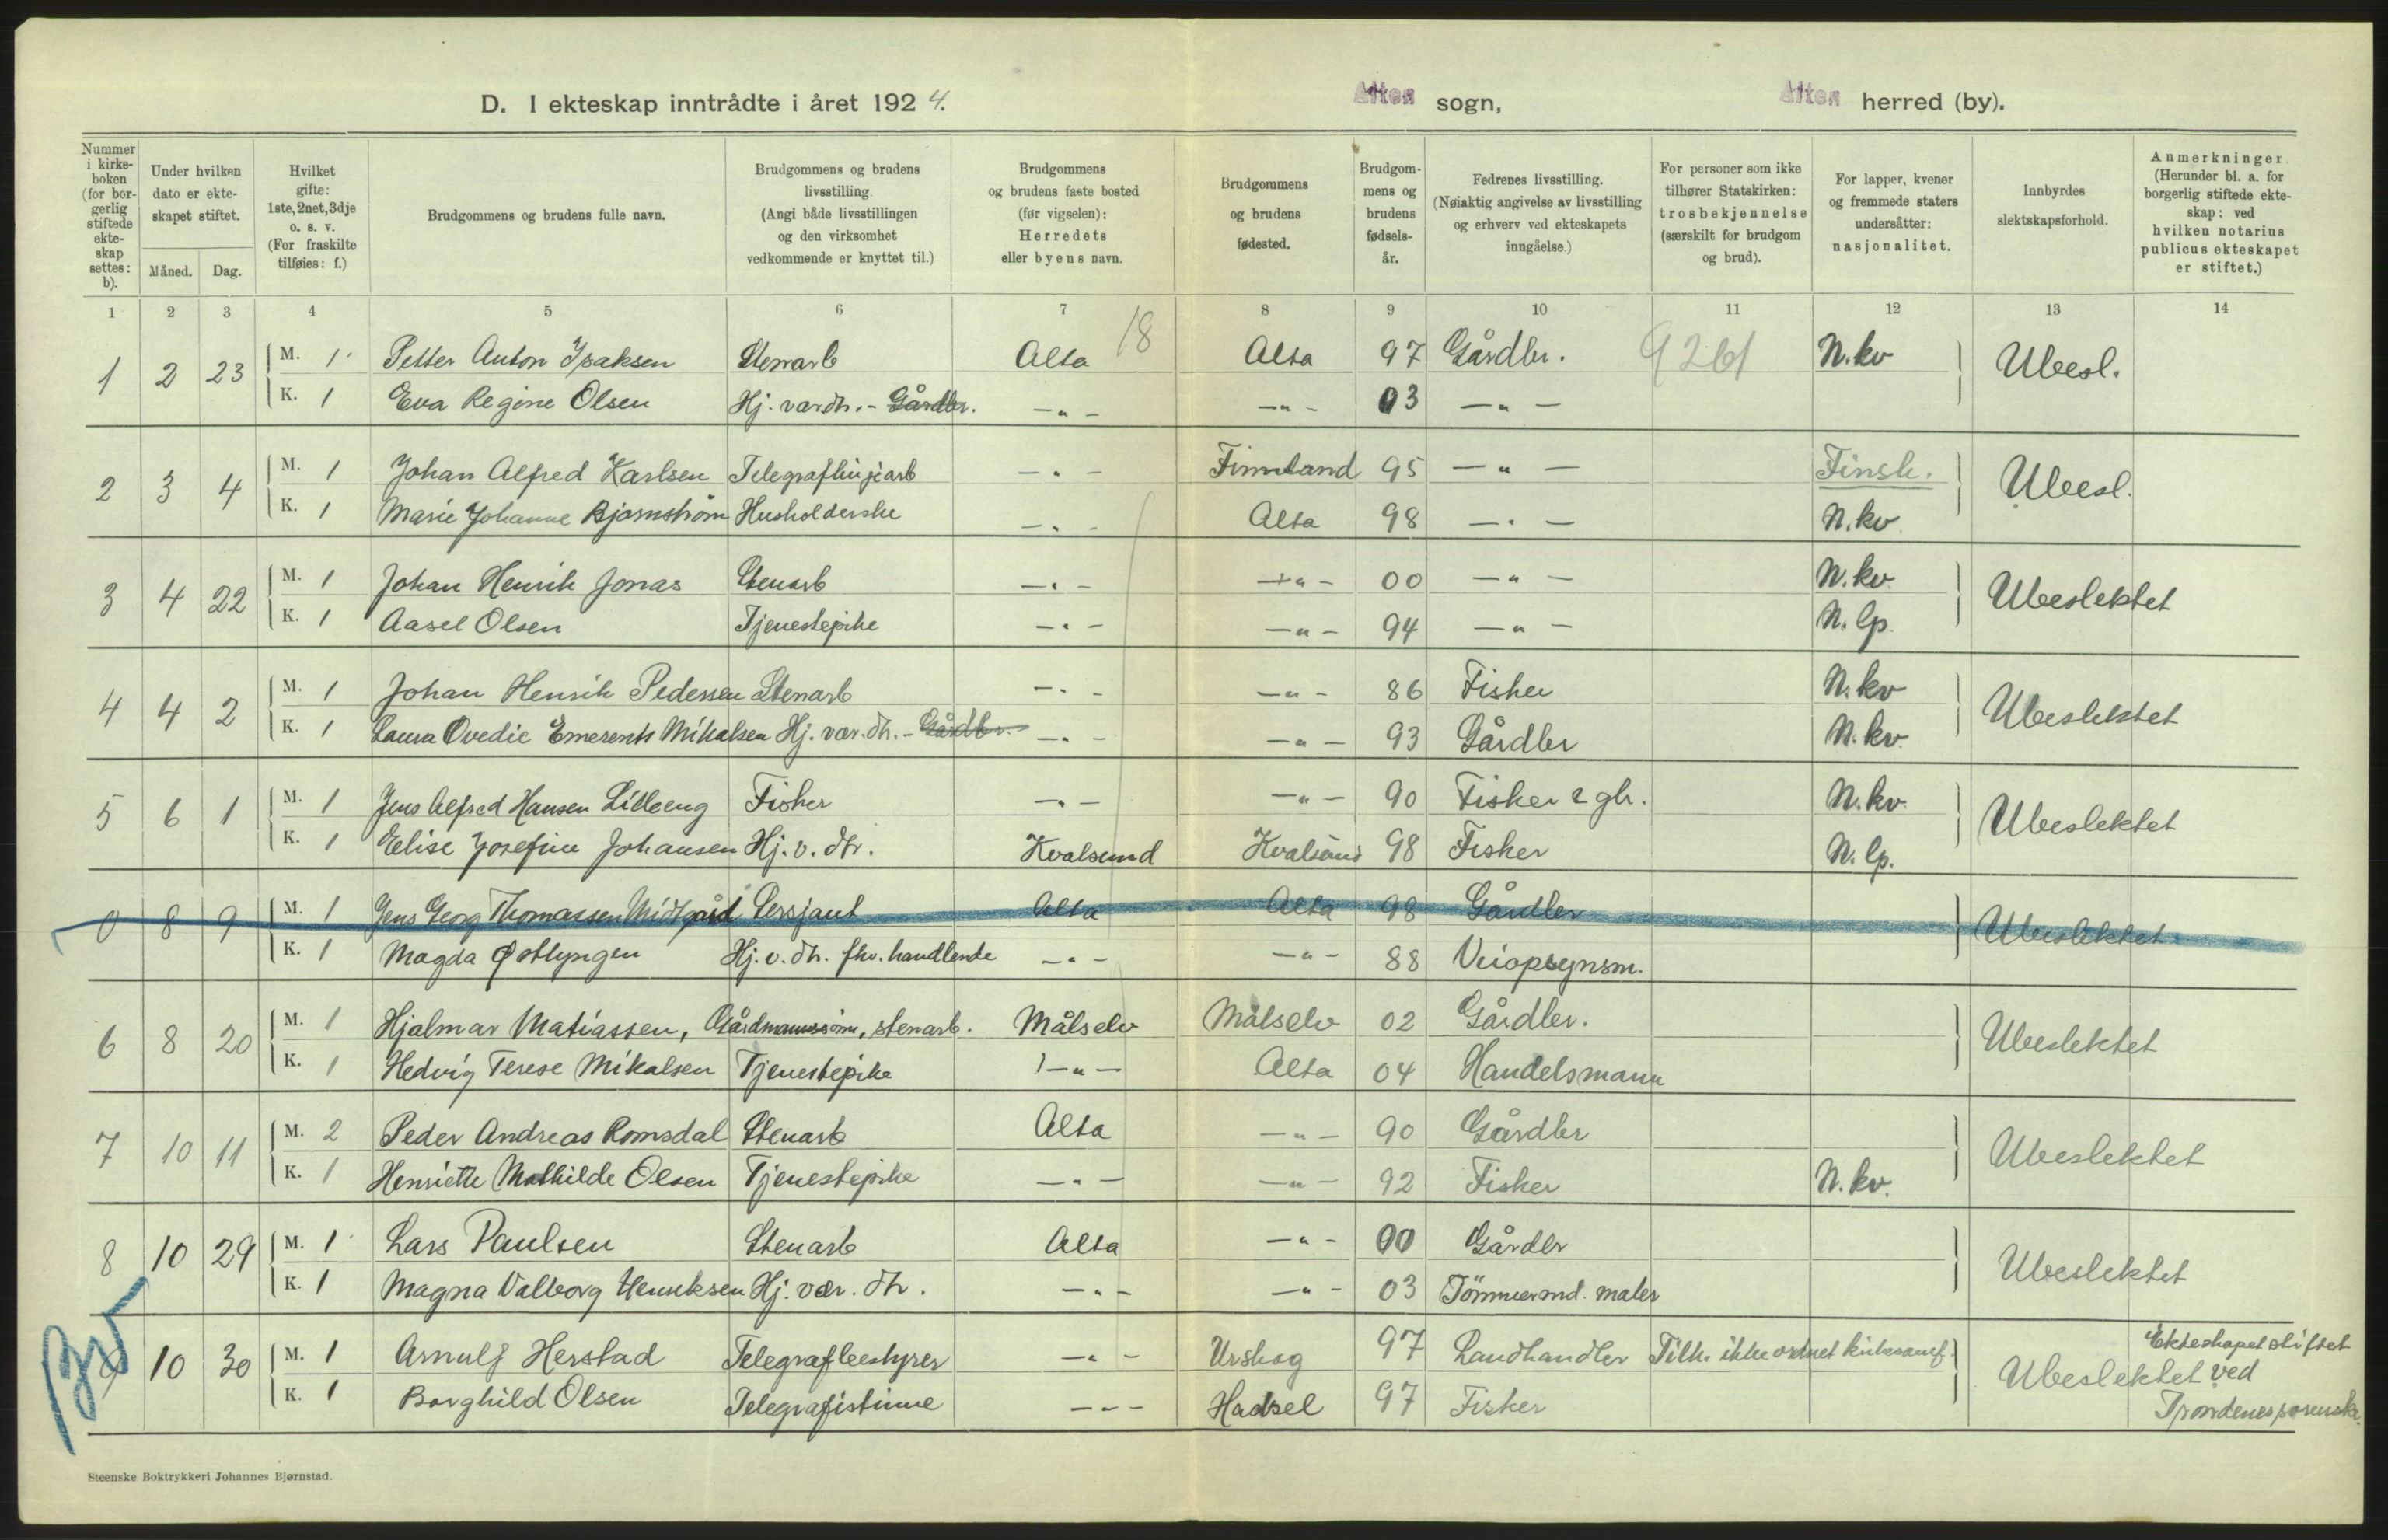 D. I ekteskap inntrådte i året 1924.
Alten sogn,
Alten herred (by).
Nummer i kirke-boken (for bor-gerlig stiftede ekte-skap settes: b).
Under hvilken dato er ekte-skapet stiftet.
Måned.
Dag.
Hvilket gifte: 1ste, 2net, 3dje o. s. v. (For fraskilte tilføies: f.)
Brudgommens og brudens fulle navn.
Brudgommens og brudens livsstilling. (Angi både livsstillingen og den virksomhet vedkommende er knyttet til.)
Brudgommens og brudens faste bosted (før vigselen): Herredets eller byens navn.
Brudgommens og brudens fødested.
Brudgom-mens og brudens fødsels-år.
Fedrenes livsstilling. (Nøiaktig angivelse av livsstilling og erhverv ved ekteskapets inngåelse.)
For personer som ikke tilhører Statskirken: trosbekjennelse (særskilt for brudgom og brud).
For lapper, kvener og fremmede staters undersåtter: nasjonalitet.
Innbyrdes slektskapsforhold.
Anmerkninger. (Herunder bl. a. for borgerlig stiftede ekte-skap: ved hvilken notarius publicus ekteskapet er stiftet.)
1 2 3 4 5 6 7 8 9 10 11 12 13 14
18
1 2 23 M. 1 Petter Anton Isaksen Stenarb Alta Alta 97 Gårdbr. 9261 N.kv Ubesl.
K. 1 Eva Regine Olsen Hj. værdtr. - Gårdbr. -"- -"- 03 -"-
2 3 4 M. 1 Johan Alfred Karlsen Telegraflinjearb -"- Finnland 95 -"- Finsk. Ubesl.
K. 1 Marie Johanne Bjørnstrøm Husholderske -"- Alta 98 -"- N.kv
3 4 22 M. 1 Johan Henrik Jonas Stenarb -"- -"- 00 -"- N.kv. Ubeslektet
K. 1 Aasel Olsen Tjenestepike -"- -"- 94 -"- N. lp.
4 4 2 M. 1 Johan Henrik Pedersen Stenarb -"- -"- 86 Fisker N.kv Ubeslektet
K. 1 Laura Ovedie Emerents Mikalsen Hj. vær. dtr. - Gårdbr. -"- -"- 93 Gårdbr N.kv.
5 6 1 M. 1 Jens Alfred Hansen Lilleeng Fisker -"- -"- 90 Fisker & gbr. N.kv. Ubeslektet
K. 1 Elise Josefine Johansen Hj. v. dtr. Kvalsund Kvalsund 98 Fisker N. lp.
0 8 9 M. 1 Jens Georg Thomassen Midtgård Sersjant Alta Alta 98 Gårdbr Ubeslektet
K. 1 Magda Østlyngen Hj. v. dtr. fhv. handlende -"- -"- 88 Veiopsynsm.
6 8 20 M. 1 Hjalmar Matiassen, Gårdmannssønn, stenarb. Målselv Målselv 02 Gårdbr. Ubeslektet
K. 1 Hedvig Terese Mikalsen Tjenestepike -"- Alta 04 Handelsmann
7 10 11 M. 2 Peder Andreas Romsdal Stenarb Alta -"- 90 Gårdbr Ubeslektet
K. 1 Henriette Mathilde Olsen Tjenestepike -"- -"- 92 Fisker N.kv.
8 10 29 M. 1 Lars Paulsen Stenarb Alta -"- 00 Gårdbr Ubeslektet
K. 1 Magna Valborg Henriksen Hj. vær. dtr. -"- -"- 03 Tømmermd. maler
9 10 30 M. 1 Arnulf Herstad Telegrafbestyrer -"- Urskog 97 Landhandler Tilh. ikke ordnet kirkesamf. Ubeslektet Ekteskapet stiftet ved
K. 1 Borghild Olsen Telegrafistinne -"- Hadsel 97 Fisker Trondenes sorenskr.
Steenske Boktrykkeri Johannes Bjørnstad.